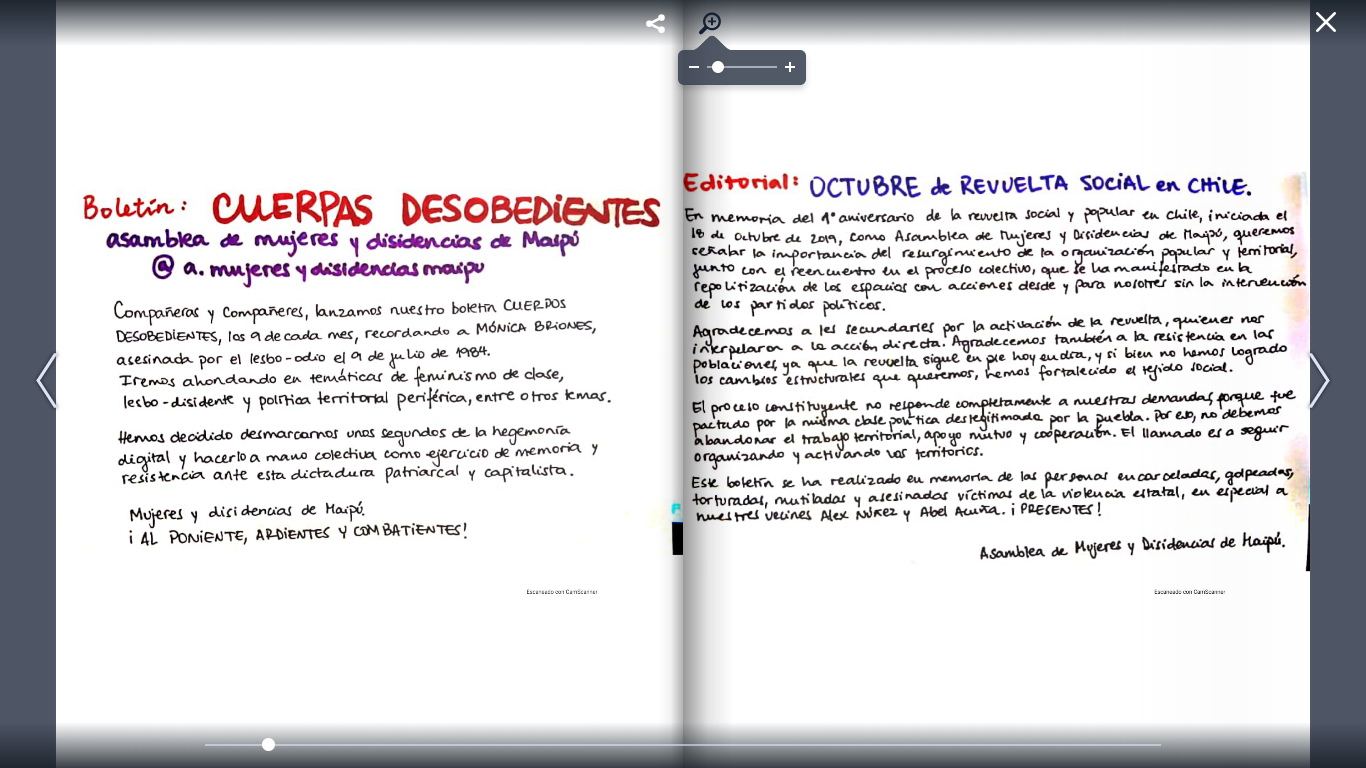 Boletín: CUERPAS DESOBEDiENTES
asamblea de mujeres y disidencias de Maipú
@ a. mujeres y disidencias maipu
Compañeras y Compañeres, lanzamos nuestro boletín CUERPOS
DESOBEDIENTES, los 9 de cada mes, recordando a MÓNICA BRIONES,
asesinada por el lesbo-odio el 9 de julio de 1984.
Iremos ahondando en temáticas de feminismo de clase,
lesbo-disidente y política territorial periférica, entre otros temas.
Hemos decidido desmarcarnos unos segundos de la hegemonía
digital y hacerlo a mano colectiva como ejercicio de memoria y
resistencia ante esta dictadura patriarcal y capitalista.
Mujeres y disidencias de Maipú.
¡AL PONIENTE, ARDIENTES Y COMBATIENTES!
Escaneado con CamScanner
Editorial: OCTUBRE de REVUELTA SOCiAL en CHiLE.
En memoria del 1° aniversario de la revuelta social y popular en Chile, iniciada el
18 de Octubre de 2019, como Asamblea de Mujeres y Disidencias de Maipú, queremos
señalar la importancia del resurgimiento de la organización popular y territorial,
junto con el reencuentro en el proceso colectivo, que se ha manifestado en la
repolitización de los espacios con acciones desde y para nosotres sin la intervención
de los partidos políticos.
Agradecemos a les secundaries por la activación de la revuelta, quienes nos
interpelaron a la acción directa. Agradecemos también a la resistencia en las
poblaciones, ya que la revuelta sigue en pie hoy en día, y si bien no hemos logrado
los cambios estructurales que queremos, hemos fortalecido el tejido social.
El proceso constituyente no responde completamente a nuestras demandas, porque fue
pactado por la misma clase política deslegitimada por la puebla. Por eso, no debemos
abandonar el trabajo territorial, apoyo mutuo y cooperación. El llamado es a seguir
organizando y activando los territorios.
Este boletín se ha realizado en memoria de las personas encarceladas, golpeadas,
torturadas, mutiladas y asesinadas víctimas de la violencia estatal, en especial a
nuestres vecines Alex Núñez y Abel Acuña. ¡PRESENTES!
Asamblea de Mujeres y Disidencias de Maipú.
Escaneado con CamScanner